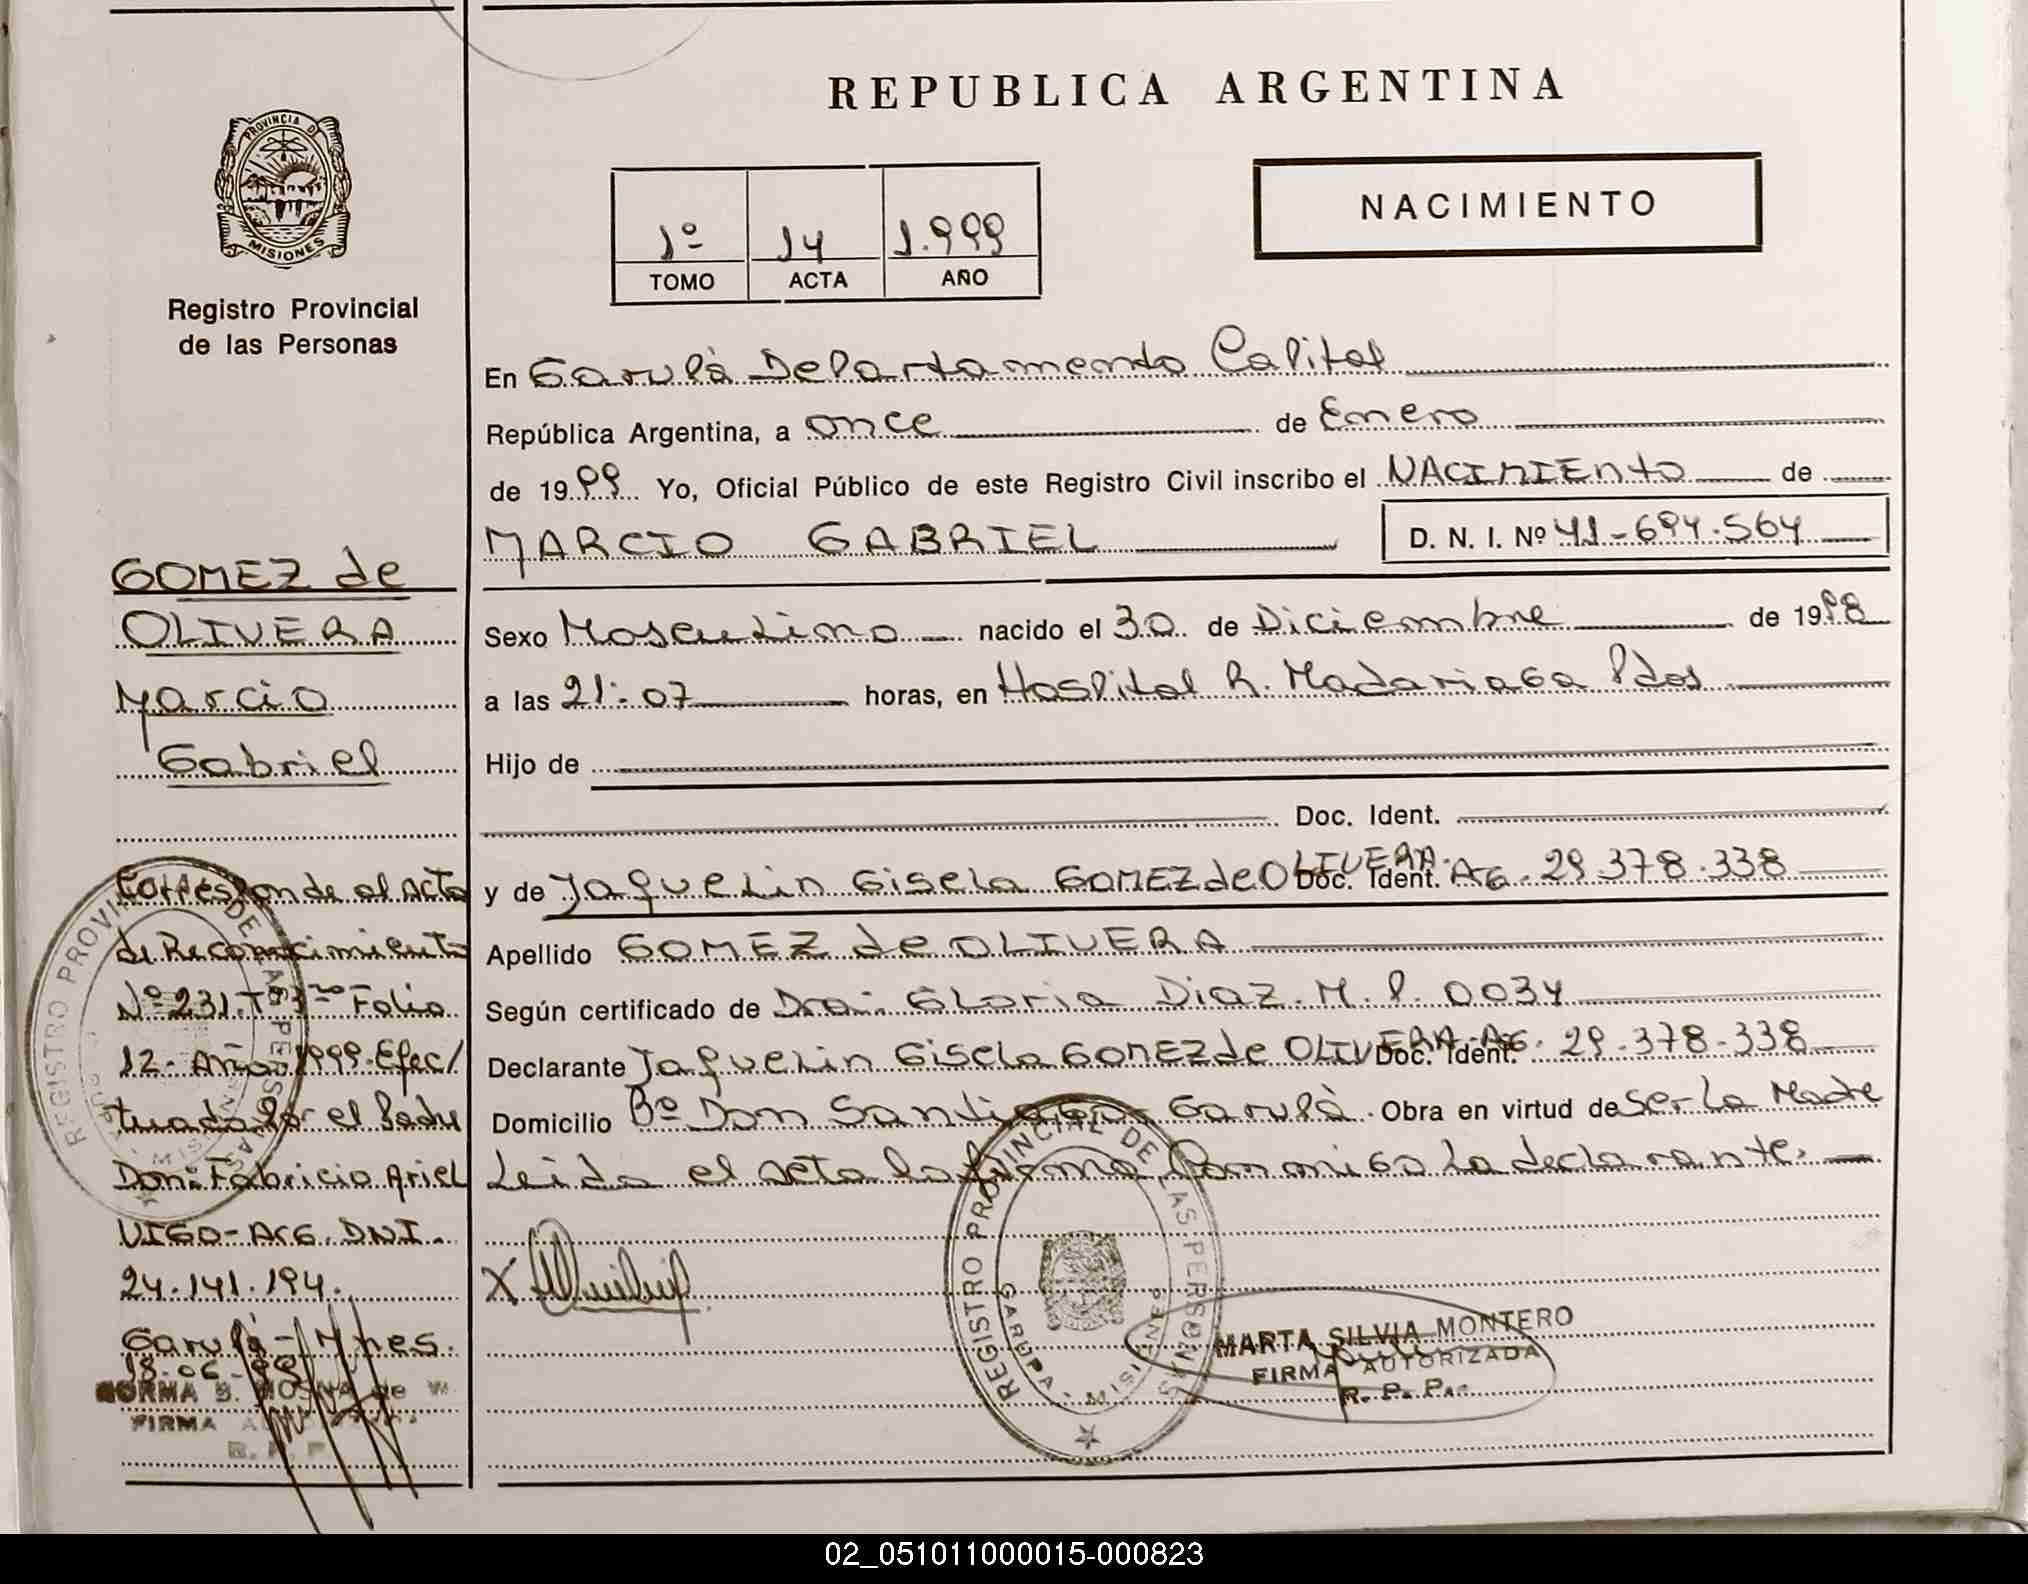 REPUBLICA ARGENTINA
PROVINCIA D
MISIONES
Registro Provincial
de las Personas
NACIMIENTO
1º 14 1.999
TOMO ACTA AÑO
En Garupà Departamento Capital
República Argentina, a once de Enero
de 1999 Yo, Oficial Público de este Registro Civil inscribo el NACIMIENTO de
MARCIO GABRIEL D. N. I. Nº 41-694.564
Sexo Masculino nacido el 30 de Diciembre de 1998
a las 21:07 horas, en Hospital R. Madariaga Pdas
Hijo de
Doc. Ident.
y de Jaquelin Gisela GOMEZ de OLIVERA. Doc. Ident. AG. 29.378.338
Apellido GOMEZ de OLIVERA
Según certificado de Dra. Gloria Diaz. M. P. 0034
Declarante Jaquelin Gisela GOMEZ de OLIVERA-AG. Doc. Ident. 29.378-338
Domicilio Bº Don Santiago Garupà. Obra en virtud de Ser La Madre
Leida el acta la firma Conmigo La declarante.
X
REGISTRO PROVINCIAL DE LAS PERSONAS
GARUPA - MISIONES
MARTA SILVIA MONTERO
FIRMA AUTORIZADA
R. P. P.
GOMEZ de
OLIVERA
Marcio
Gabriel
Corresponde al Acta
de Reconocimiento
Nº 231. Tº 3ro Folio
12- Año 1999-Efec/
tuada por el Padre
Don: Fabricio Ariel
VIGO-ARG. DNI.
24.141.194.
Garupà-Mnes.
18-06-99
NORMA B. de W.
FIRMA
R. P. P
REGISTRO PROVINCIAL DE LAS PERSONAS
02_051011000015-000823